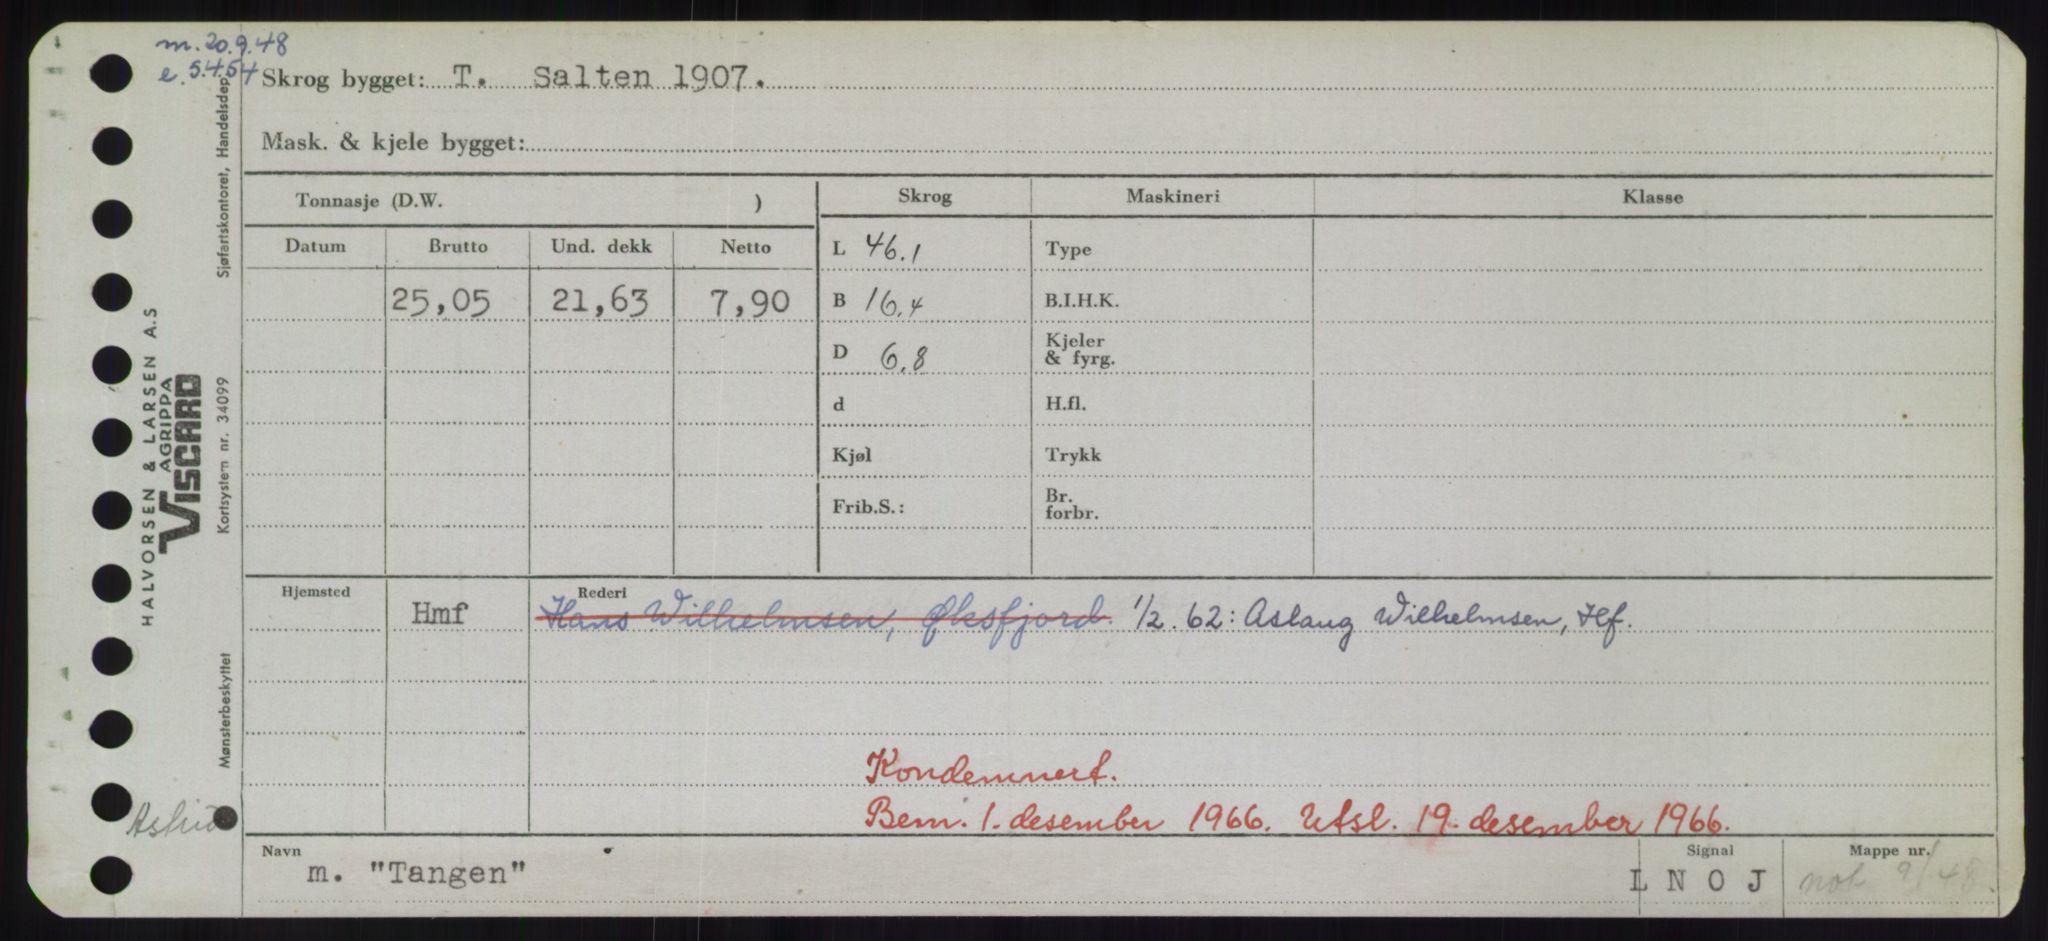 m. 20.9.48
e. 5.4.54
Skrog bygget: T. Salten 1907.
Mask. & kjele bygget:
Tonnasje (D.W. )
Skrog Maskineri Klasse
Datum Brutto Und. dekk Netto
L 46.1 Type
25,05 21,63 7,90 B 16.4 B.I.H.K.
D 6.8 Kjeler & fyrg.
d H.fl.
Kjøl Trykk
Frib.S.: Br. forbr.
Hjemsted Rederi
Hmf Hans Wilhelmsen, Øksfjord. 1/2. 62: Aslaug Wilhelmsen, Hf.
Kondemnert.
Bem. 1. desember 1966. Utsl. 19. desember 1966.
Navn Signal Mappe nr.
m. "Tangen" L N O J not 9/48.
HALVORSEN & LARSEN A.S
AGRIPPA
VISCARD
Mønsterbeskyttet Kortsystem nr. 34099 Sjøfartskontoret, Handelsdep.